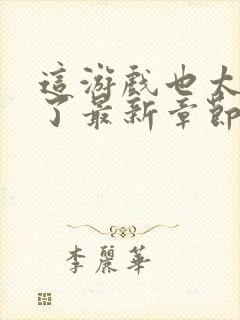 這游戲也太
了最新章節
李麗華